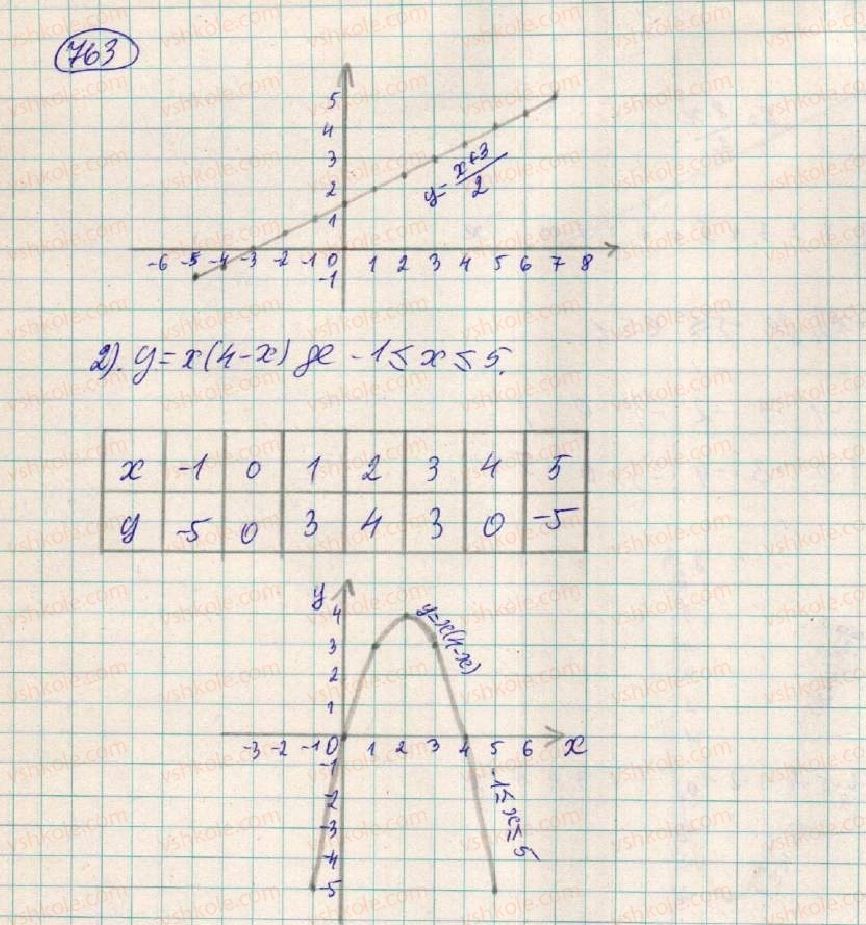 763
5
4
3
2
1
y=x+3/2
-6 -5 -4 -3 -2 -1 0 1 2 3 4 5 6 7 8
-1
2). y=x(4-x) де -1≤x≤5.
x -1 0 1 2 3 4 5
y -5 0 3 4 3 0 -5
y
4
y=x(4-x)
3
2
1
-3 -2 -1 0 1 2 3 4 5 6 x
-1
-2
-3
-4
-5
-1≤x≤5
vshkole.com